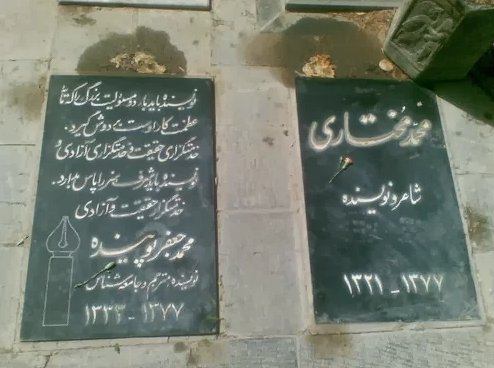 نویسنده باید بار دو مسئولیت بزرگی را که تنها
عظمت کار اوست بر دوش گیرد.
خدمتگزاری حقیقت و خدمتگزاری آزادی و
نویسنده باید شرف هنر را پاس دارد.
خدمتگزار حقیقت و آزادی
محمد جعفر پوینده
نویسنده، مترجم و جامعه‌شناس
۱۳۳۳ - ۱۳۷۷
محمد مختاری
شاعر و نویسنده
۱۳۲۱ - ۱۳۷۷